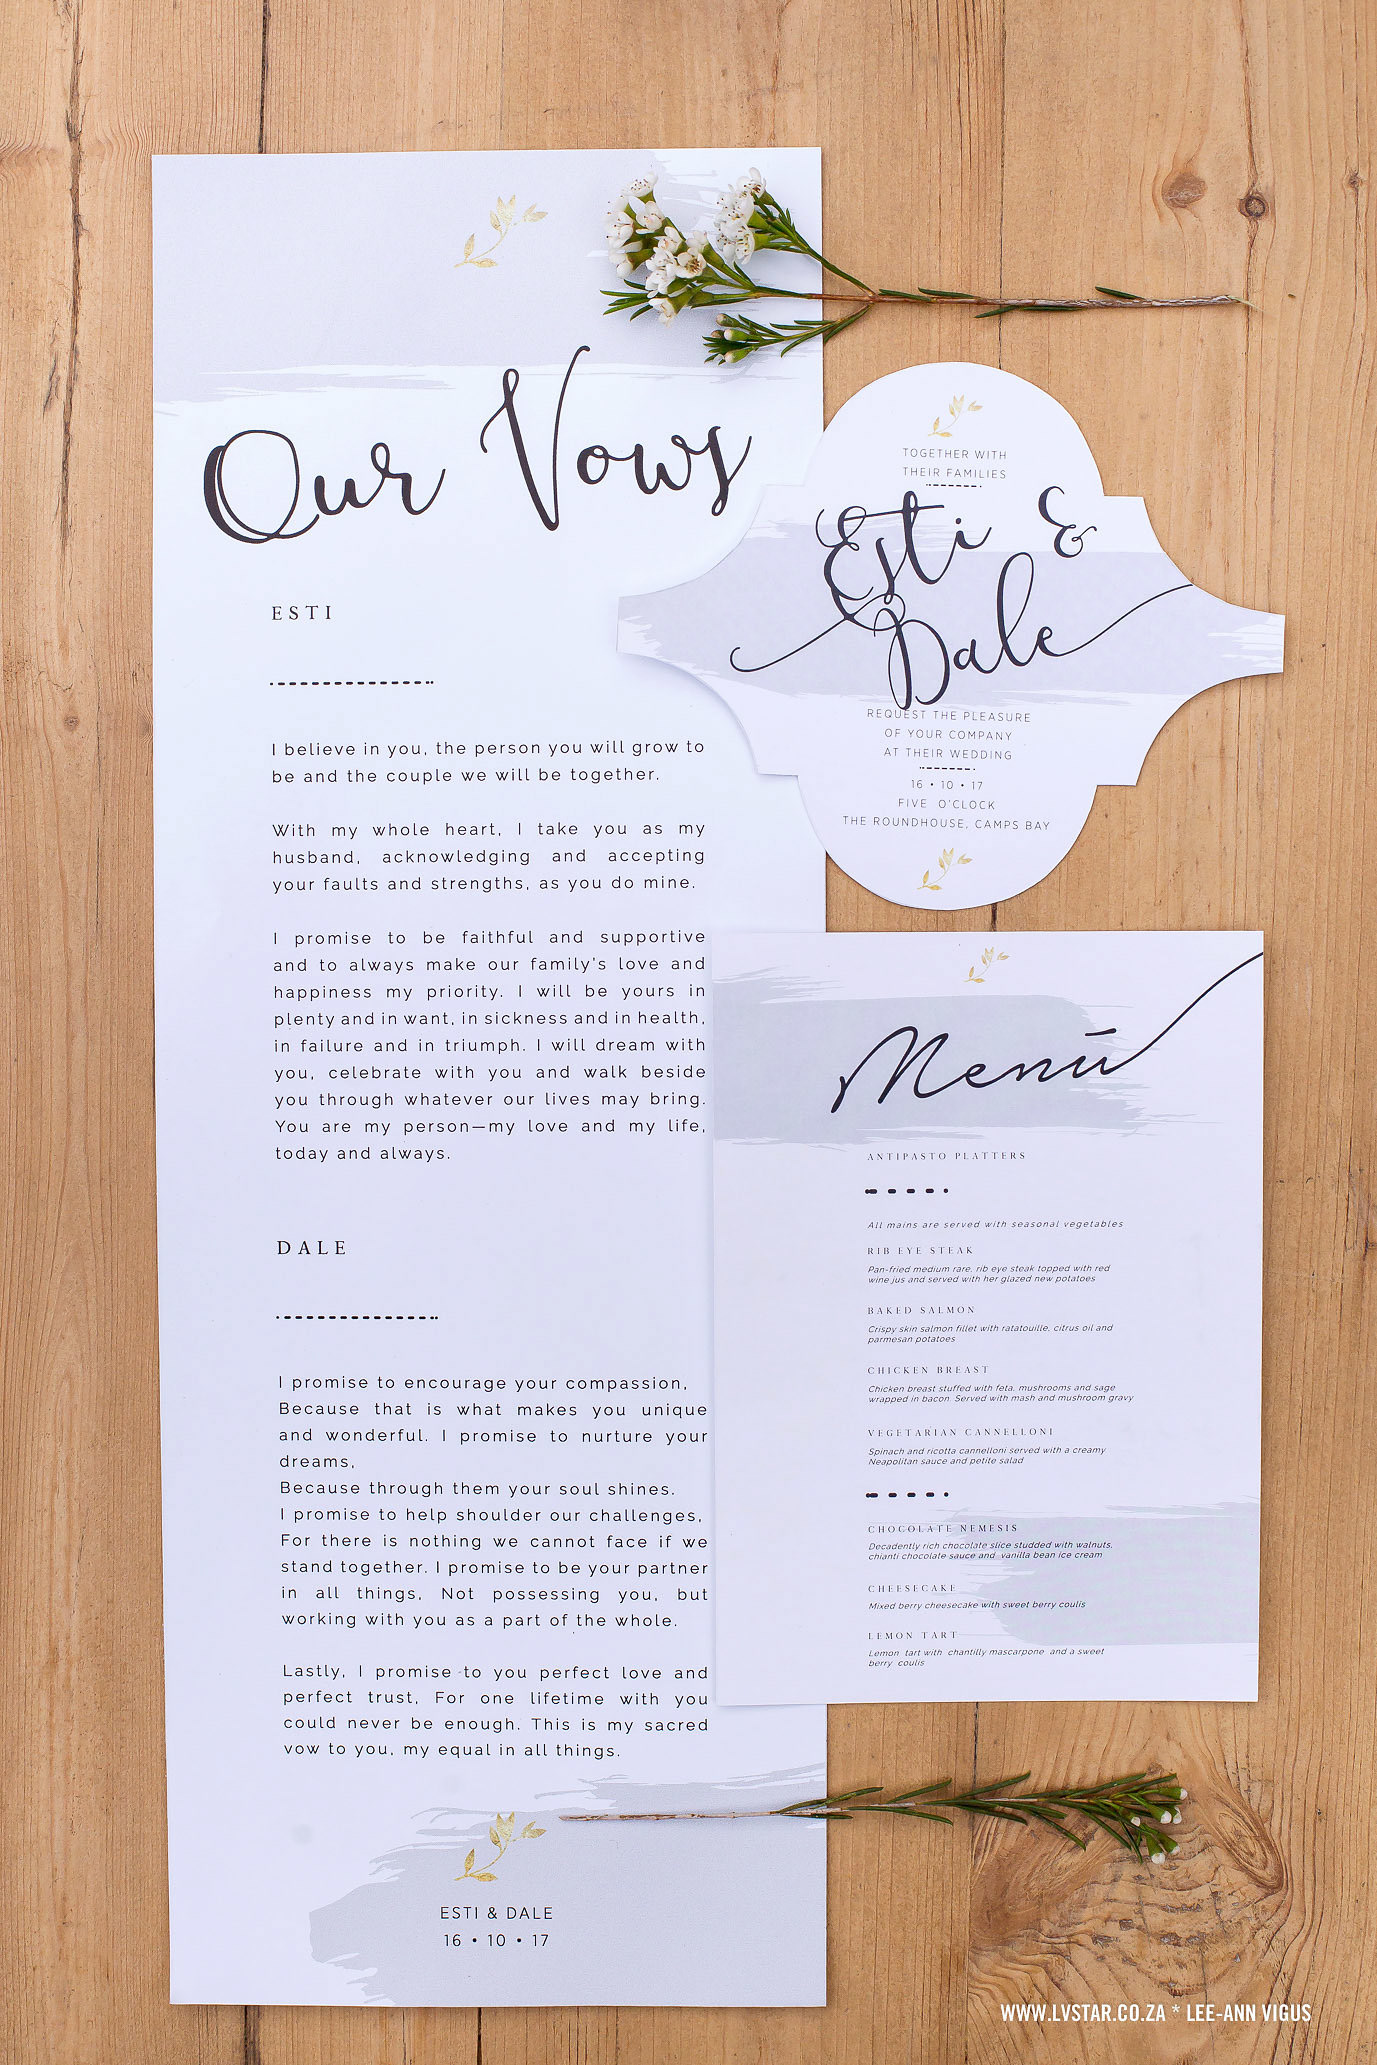 Our Vows
ESTI
I believe in you, the person you will grow to
be and the couple we will be together.
With my whole heart, I take you as my
husband, acknowledging and accepting
your faults and strengths, as you do mine.
I promise to be faithful and supportive
and to always make our family's love and
happiness my priority. I will be yours in
plenty and in want, in sickness and in health,
in failure and in triumph. I will dream with
you, celebrate with you and walk beside
you through whatever our lives may bring.
You are my person—my love and my life,
today and always.
DALE
I promise to encourage your compassion,
Because that is what makes you unique
and wonderful. I promise to nurture your
dreams,
Because through them your soul shines.
I promise to help shoulder our challenges,
For there is nothing we cannot face if we
stand together. I promise to be your partner
in all things, Not possessing you, but
working with you as a part of the whole.
Lastly, I promise to you perfect love and
perfect trust, For one lifetime with you
could never be enough. This is my sacred
vow to you, my equal in all things.
ESTI & DALE
16 • 10 • 17
TOGETHER WITH
THEIR FAMILIES
Esti &
Dale
REQUEST THE PLEASURE
OF YOUR COMPANY
AT THEIR WEDDING
16 • 10 • 17
FIVE O'CLOCK
THE ROUNDHOUSE, CAMPS BAY
Menú
ANTIPASTO PLATTERS
All mains are served with seasonal vegetables
RIB EYE STEAK
Pan-fried medium rare, rib eye steak topped with red
wine jus and served with her glazed new potatoes
BAKED SALMON
Crispy skin salmon fillet with ratatouille, citrus oil and
parmesan potatoes
CHICKEN BREAST
Chicken breast stuffed with feta, mushrooms and sage
wrapped in bacon. Served with mash and mushroom gravy
VEGETARIAN CANNELLONI
Spinach and ricotta cannelloni served with a creamy
Neapolitan sauce and petite salad
CHOCOLATE NEMESIS
Decadently rich chocolate slice studded with walnuts,
chianti chocolate sauce and vanilla bean ice cream
CHEESECAKE
Mixed berry cheesecake with sweet berry coulis
LEMON TART
Lemon tart with chantilly mascarpone and a sweet
berry coulis
WWW.LVSTAR.CO.ZA * LEE-ANN VIGUS